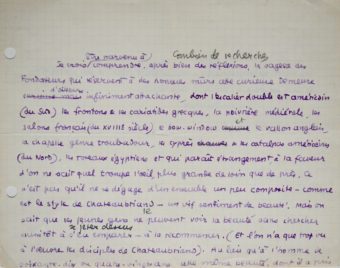 (Su parvenu à) Combien de recherches
Je crois comprendre, après bien des réflexions, la sagesse des
Fondateurs qui réservent à des moines mûrs une curieuse demeure
infiniment attachante, dont l'escalier double est américain
(du Sud) les frontons et les cariatides grecques, la poivrière médiévale, les
salons français du XVIIIe siècle, bow-window et vallon anglais
à chapelle genre troubadour, les catalpas américains
(du Nord), les roseaux égyptiens et qui paraît étrangement à la faveur
d'on ne sait quel trompe l'œil plus grande de loin que de près. Ce
n'est pas qu'il ne se dégage d'un ensemble un peu composite - comme
est le style de Chateaubriand - un vif sentiment de beauté, mais on
sait que les jeunes gens ne peuvent voir la beauté sans chercher
se jeter dessus
aussitôt à s'en emparer à la recommencer. (et l'on n'a que trop vu
à l'œuvre les disciples de Chateaubriand). Au lieu qu'à l'homme de